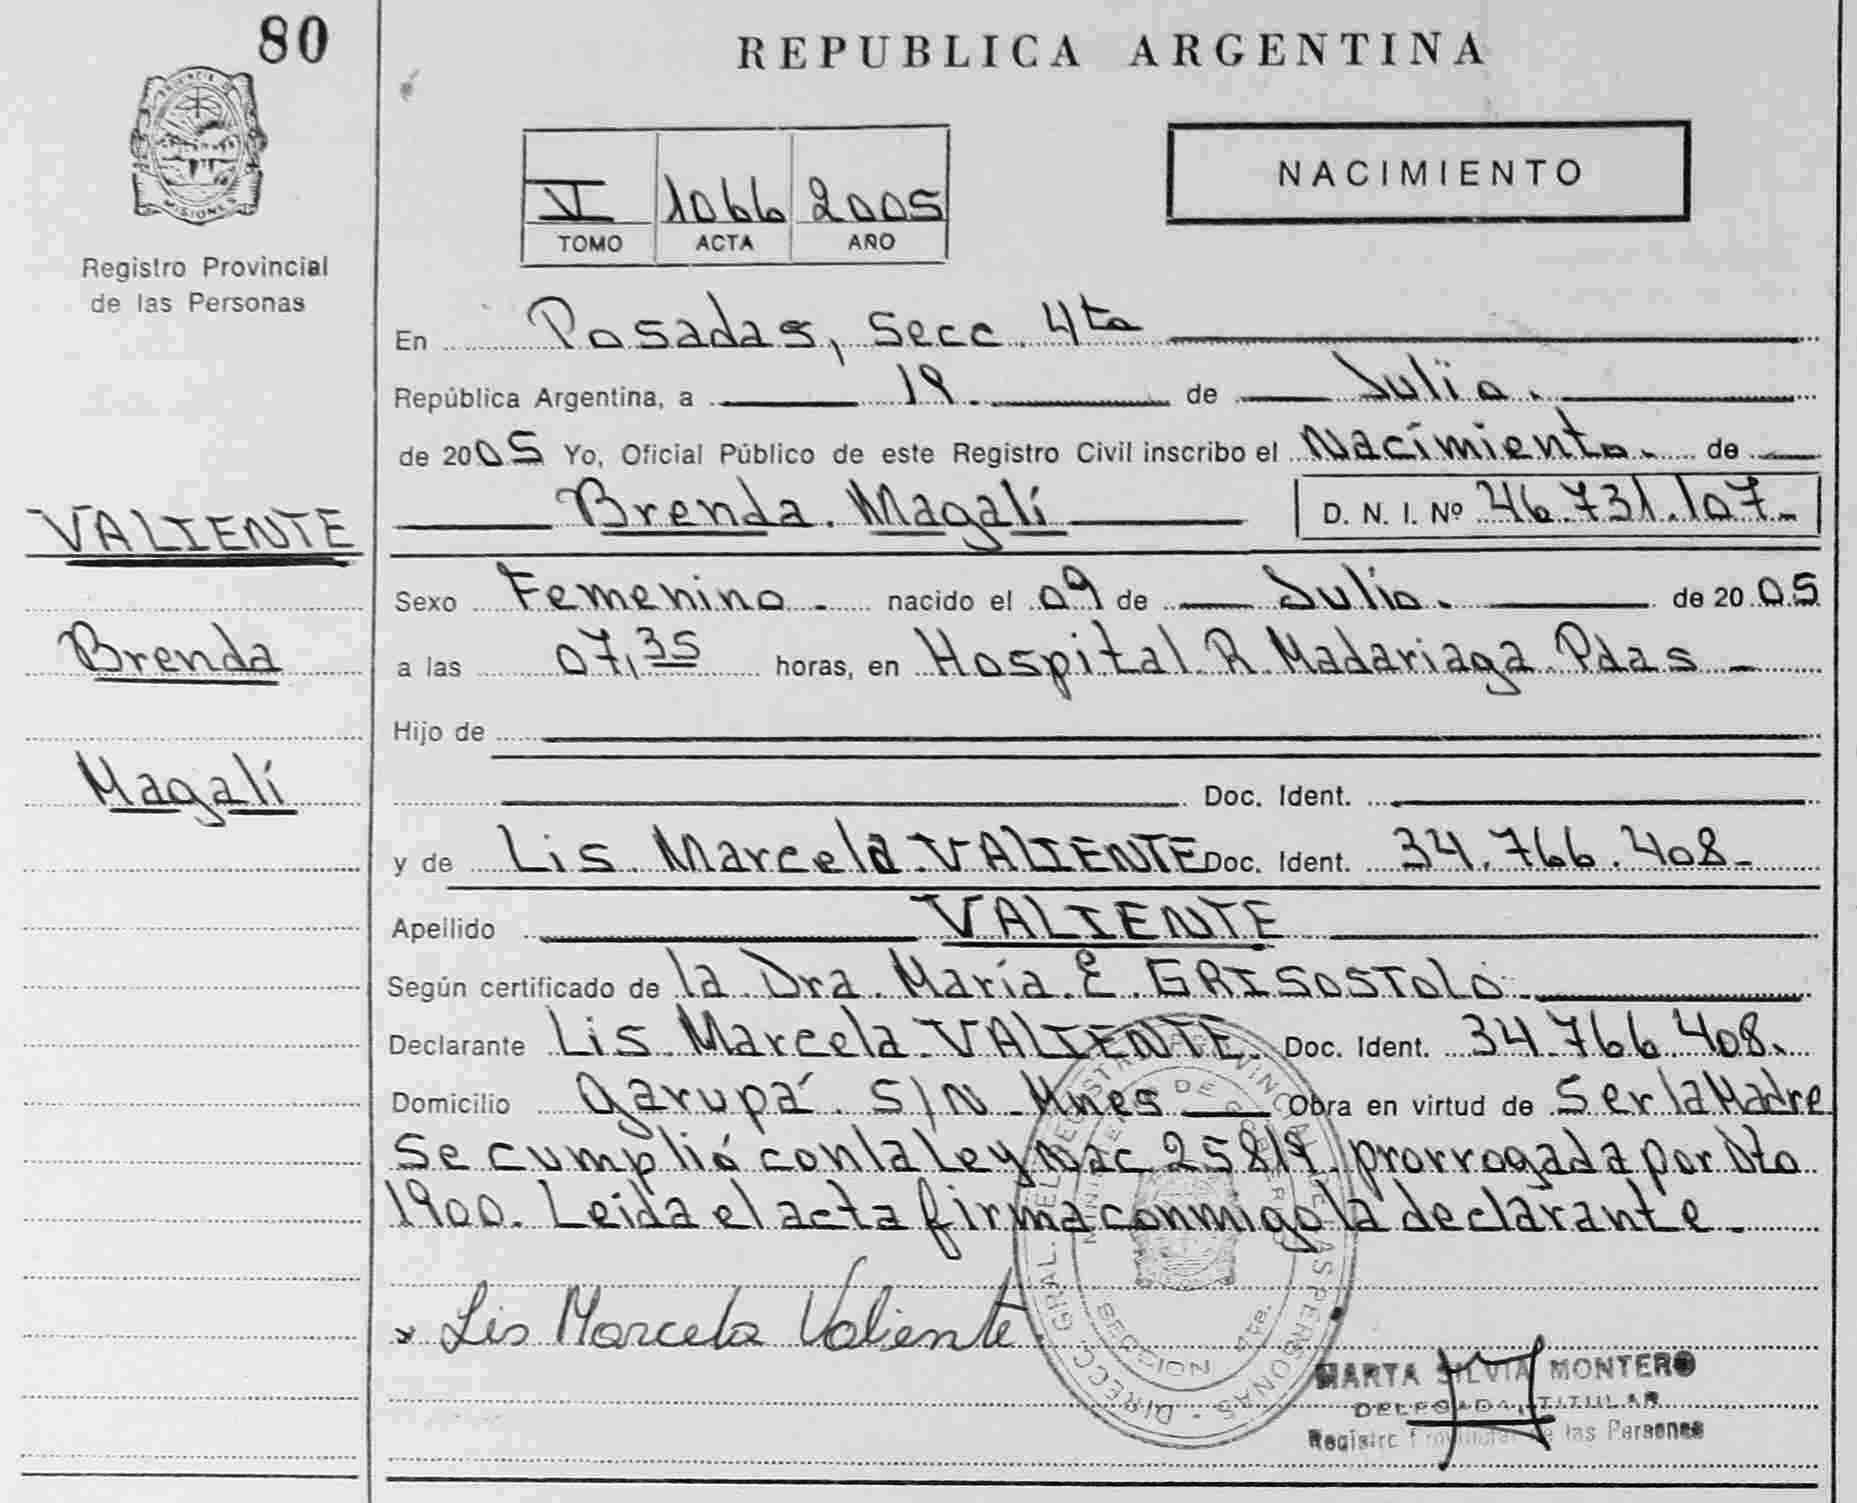 80
PROVINCIA DE
MISIONES
Registro Provincial
de las Personas
VALIENTE
Brenda
Magalí
REPUBLICA ARGENTINA
NACIMIENTO
VI 1066 2005
TOMO ACTA AÑO
En Posadas, Secc. 4ta
República Argentina, a 19 de Julio.
de 2005 Yo, Oficial Público de este Registro Civil inscribo el Nacimiento. de
Brenda Magalí D. N. I. Nº 46.731.107-
Sexo Femenino. nacido el 09 de Julio. de 2005
a las 07,35 horas, en Hospital R. Madariaga Pdas -
Hijo de
Doc. Ident.
y de Lis Marcela VALIENTE Doc. Ident. 34.766.408-
Apellido VALIENTE
Según certificado de la Dra. María E. GRISOSTOLO-
Declarante Lis Marcela VALIENTE. Doc. Ident. 34.766.408.
Domicilio Garupá S/N Mnes Obra en virtud de Ser la Madre
Se cumplió con la Ley Nac. 25819 prorrogada por Dto
1900. Leida el acta firma conmigo la declarante-
x Lis Marcela Valiente
DIRECC. GRAL. DEL REGISTRO PROVINCIAL DE LAS PERSONAS
MINISTERIO DE GOBIERNO
SECCION 4ta.
MARTA SILVIA MONTERO
DELEGADA TITULAR
Registro Provincial de las Personas